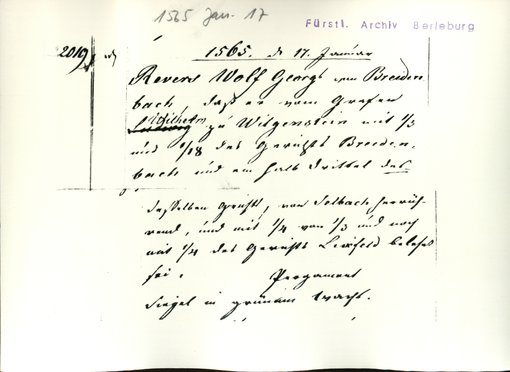 1565 Jan. 17
Fürstl. Archiv Berleburg
2019
1565. d 17. Januar
Revers Wolf Georgs von Breiden
bach, daß er vom Grafen
Wilhelm
zu Witgenstein mit 1/3
und 1/18 des Gerichts Breiden-
bach und ein halb Drittel des
desselben Gerichts, von Selbach herrüh-
rend, und mit 1/4 von 1/3 und noch
mit 1/4 des Gerichts Lixfeld belehnt
sei.
Pergament
Siegel in grünem Wachs.